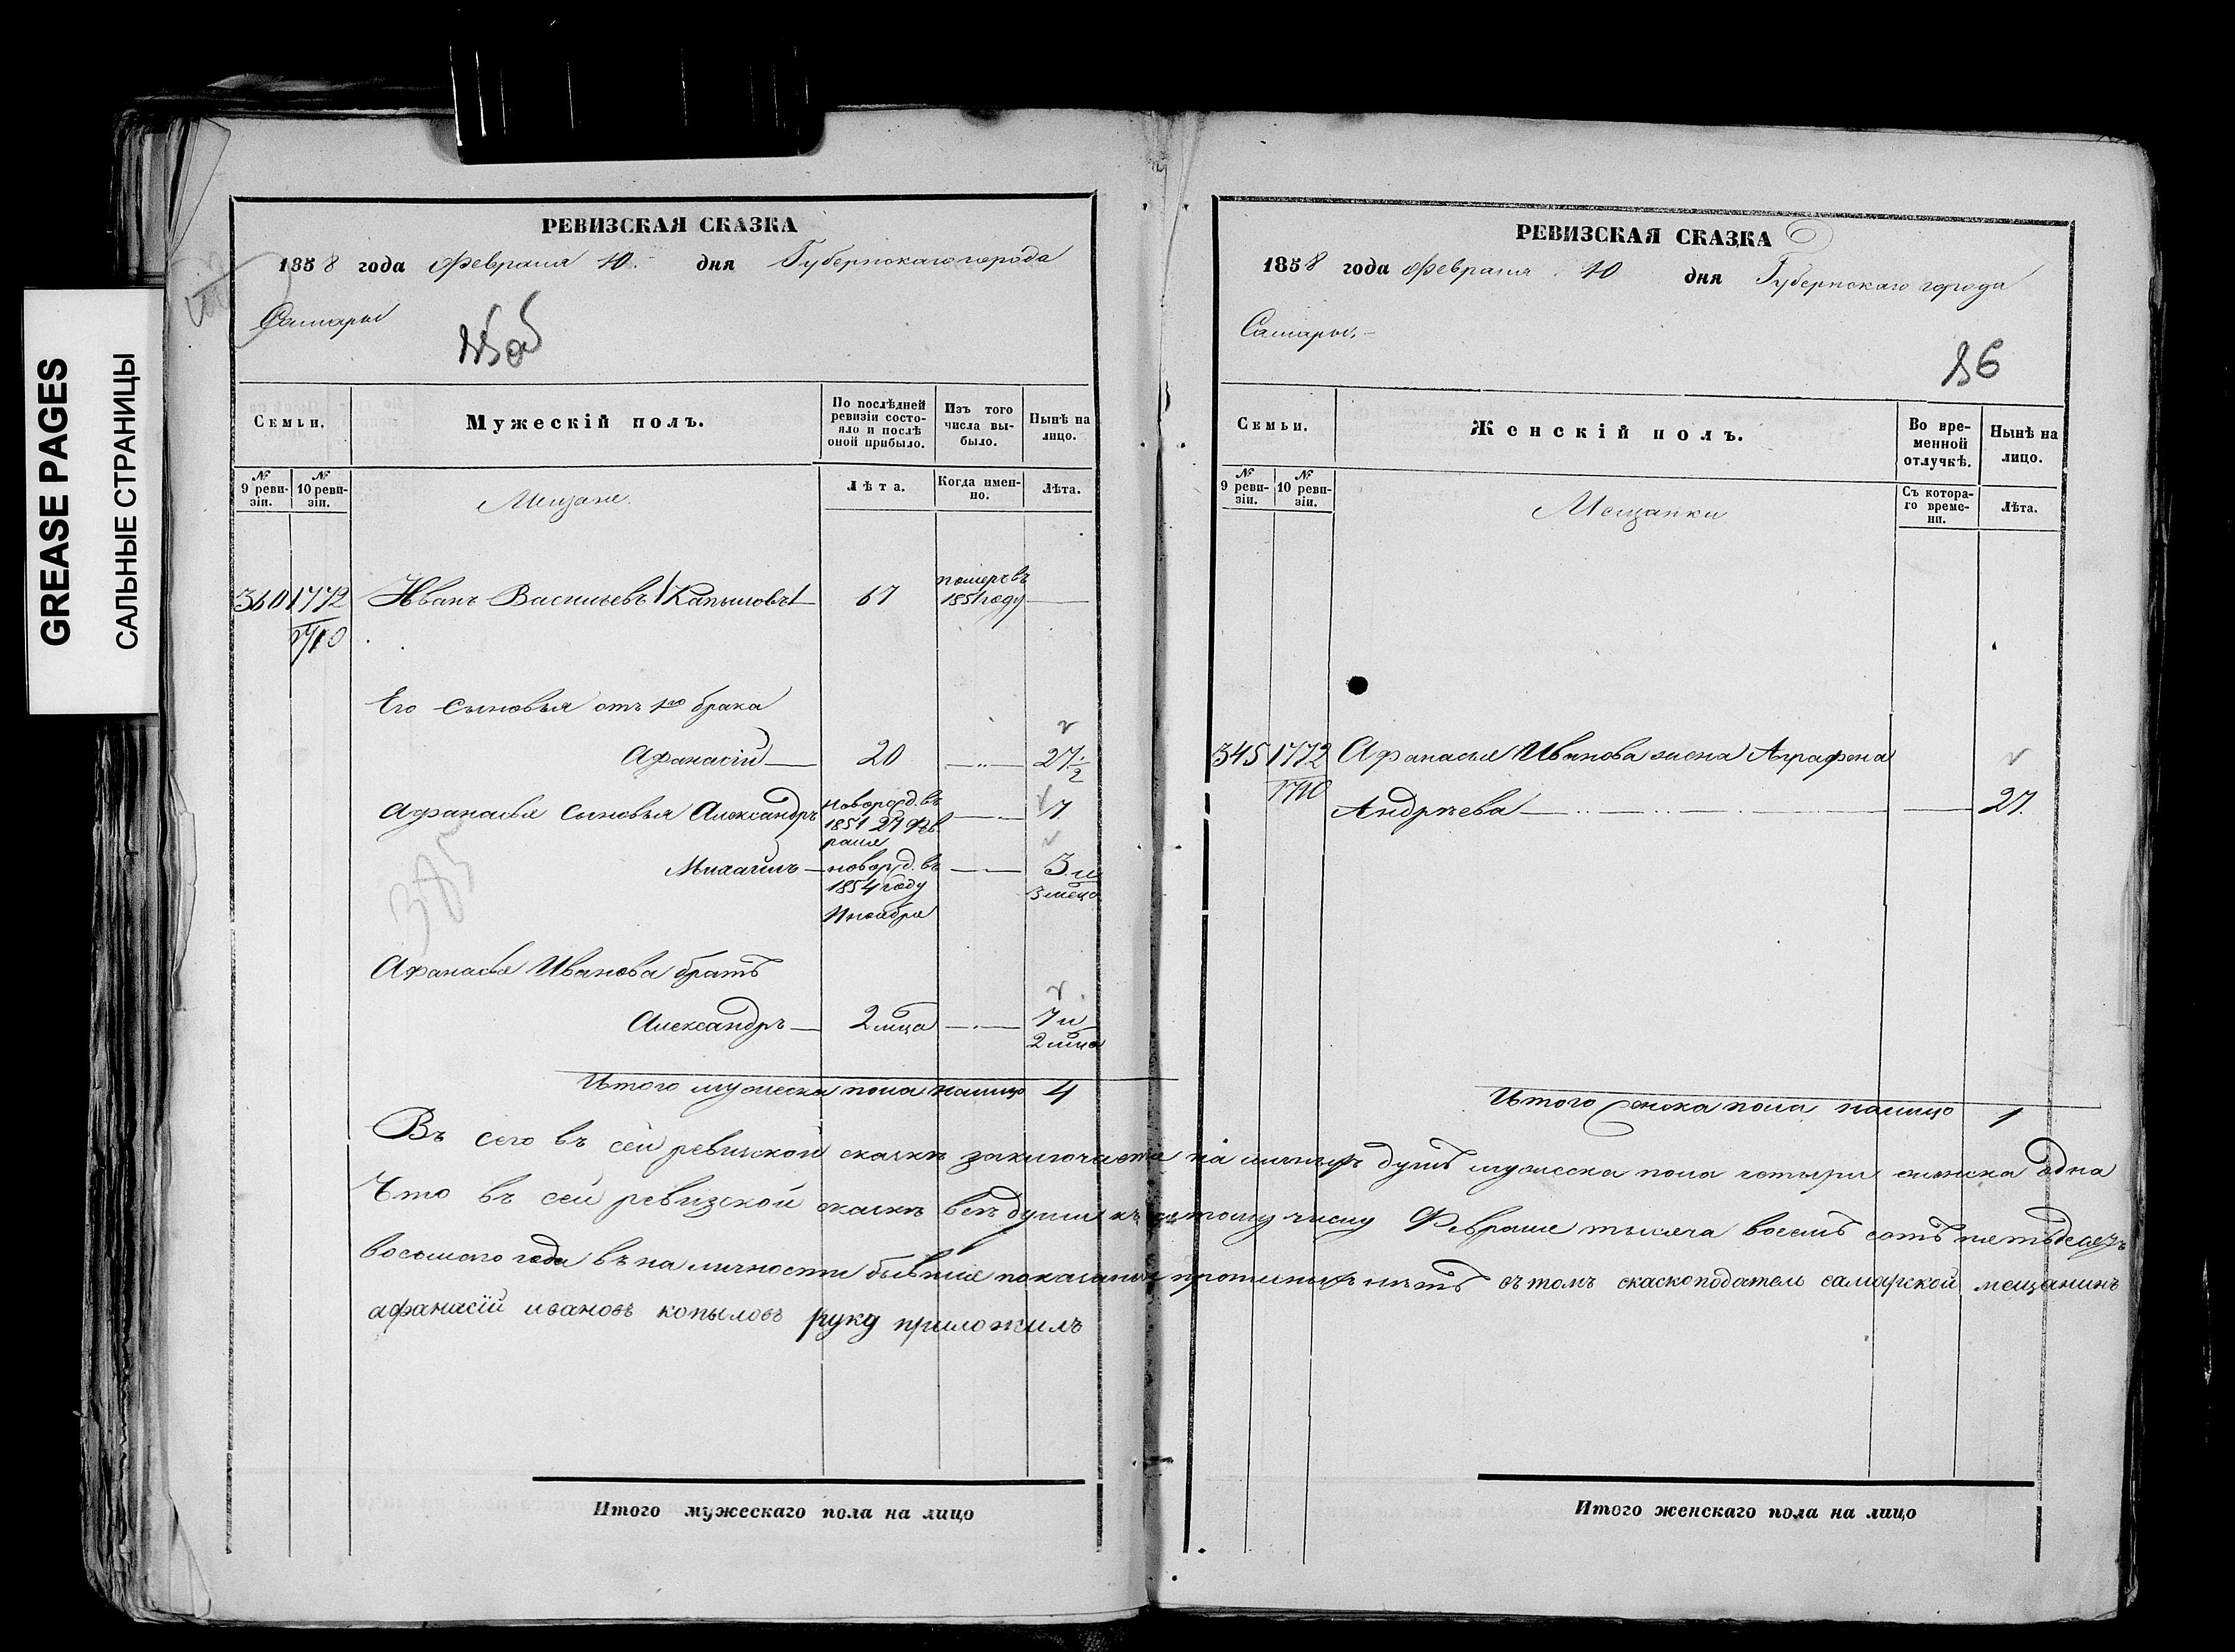 GREASE PAGES
САЛЬНЫЕ СТРАНИЦЫ
РЕВИЗСКАЯ СКАЗКА
1858 года Февраля 10 дня Губернскаго города
Самары
Семьи.
Мужескій полъ.
По послѣдней ревизіи состояло и послѣ оной прибыло.
Изъ того числа выбыло.
Нынѣ на лицо.
№ 9 ревизіи.
№ 10 ревизіи.
Мещане.
Лѣта.
Когда именно.
Лѣта.
360 1772 Иванъ Васильевъ Капыловъ 67 померъ въ 1851 году
1710
Его сыновья отъ 1го брака
Афанасій 20 27 1/2
Афанасья сыновья Александръ новорожд. въ 1851 27 Февраля 7
Михаилъ новорожд. въ 1854 году Ноября 3 и 3 месец
385
Афанасья Иванова братъ
Александръ 2 мца 7 и 2 мца
Итого мужеска пола налицо 4
РЕВИЗСКАЯ СКАЗКА
1858 года Февраля 10 дня Губернскаго города
Самары.
86
Семьи.
Женскій полъ.
Во временной отлучкѣ.
Нынѣ на лицо.
№ 9 ревизіи.
№ 10 ревизіи.
Мещанки
Съ котораго времени.
Лѣта.
345 1772 Афанасья Иванова жена Аграфена
1710 Андреева 27.
Итого женска пола налицо 1
Въ сего въ сей ревизской скаске заключается на личныхъ душъ мужеска пола четыри женска одна
Что въ сей ревизской скаске все души къ десятому числу Февраля тысяча восемъ сотъ петьдесять
восьмого года въ на личности бывшие показаны и прописныхъ нетъ въ томъ скаскоподатель самарской мещанинъ
афанасій ивановъ копыловъ руку приложилъ
Итого мужескаго пола на лицо
Итого женскаго пола на лицо